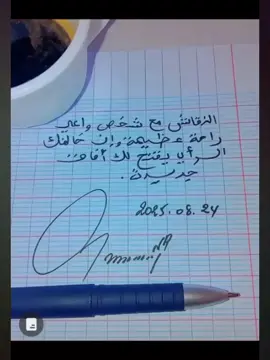 النقاش مع شخص واعي
راحة عظيمة وإن خالفك
الرأي يفتح لك أفاق
جديدة.
2025.08.24